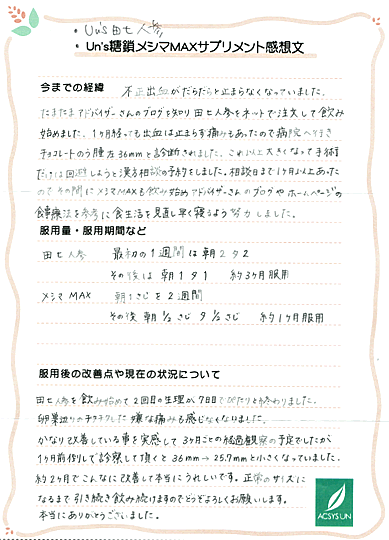 ・Un's 田七人参
・Un's糖鎖メシマMAXサプリメント感想文
今までの経緯 不正出血がだらだらと止まらなくなっていました。
たまたまアドバイザーさんのブログを知り 田七人参をネットで注文して飲み
始めました。1ヶ月経っても出血は止まらず痛みもあったので病院へ行き
チョコレートのう腫左36mmと診断されました。これ以上大きくなって手術
だけは回避しようと漢方相談の予約をしました。相談日まで1ヶ月以上あった
のでその間にメシマMAXも飲み始めアドバイザーさんのブログやホームページの
食事療法を参考に食生活を見直し早く寝るよう努力しました。
服用量・服用期間など
田七人参 最初の1週間は朝2夕2
その後は朝1夕1 約3ヶ月服用
メシマMAX 朝1さじを2週間
その後 朝1/2さじ 夕1/2さじ 約1ヶ月服用
服用後の改善点や現在の状況について
田七人参を飲み始めて2回目の生理が7日目でぴたりと終わりました。
卵巣辺りのチクチクした嫌な痛みも感じなくなりました。
かなり改善している事を実感して3ヶ月ごとの経過観察の予定でしたが
1ヶ月前倒しで診察して頂くと36mm→25.7mmと小さくなっていました。
約2ヶ月でこんなに改善して本当にうれしいです。正常のサイズに
なるまで引き続き飲み続けますのでどうぞよろしくお願いします。
本当にありがとうございました。
ACSYS UN